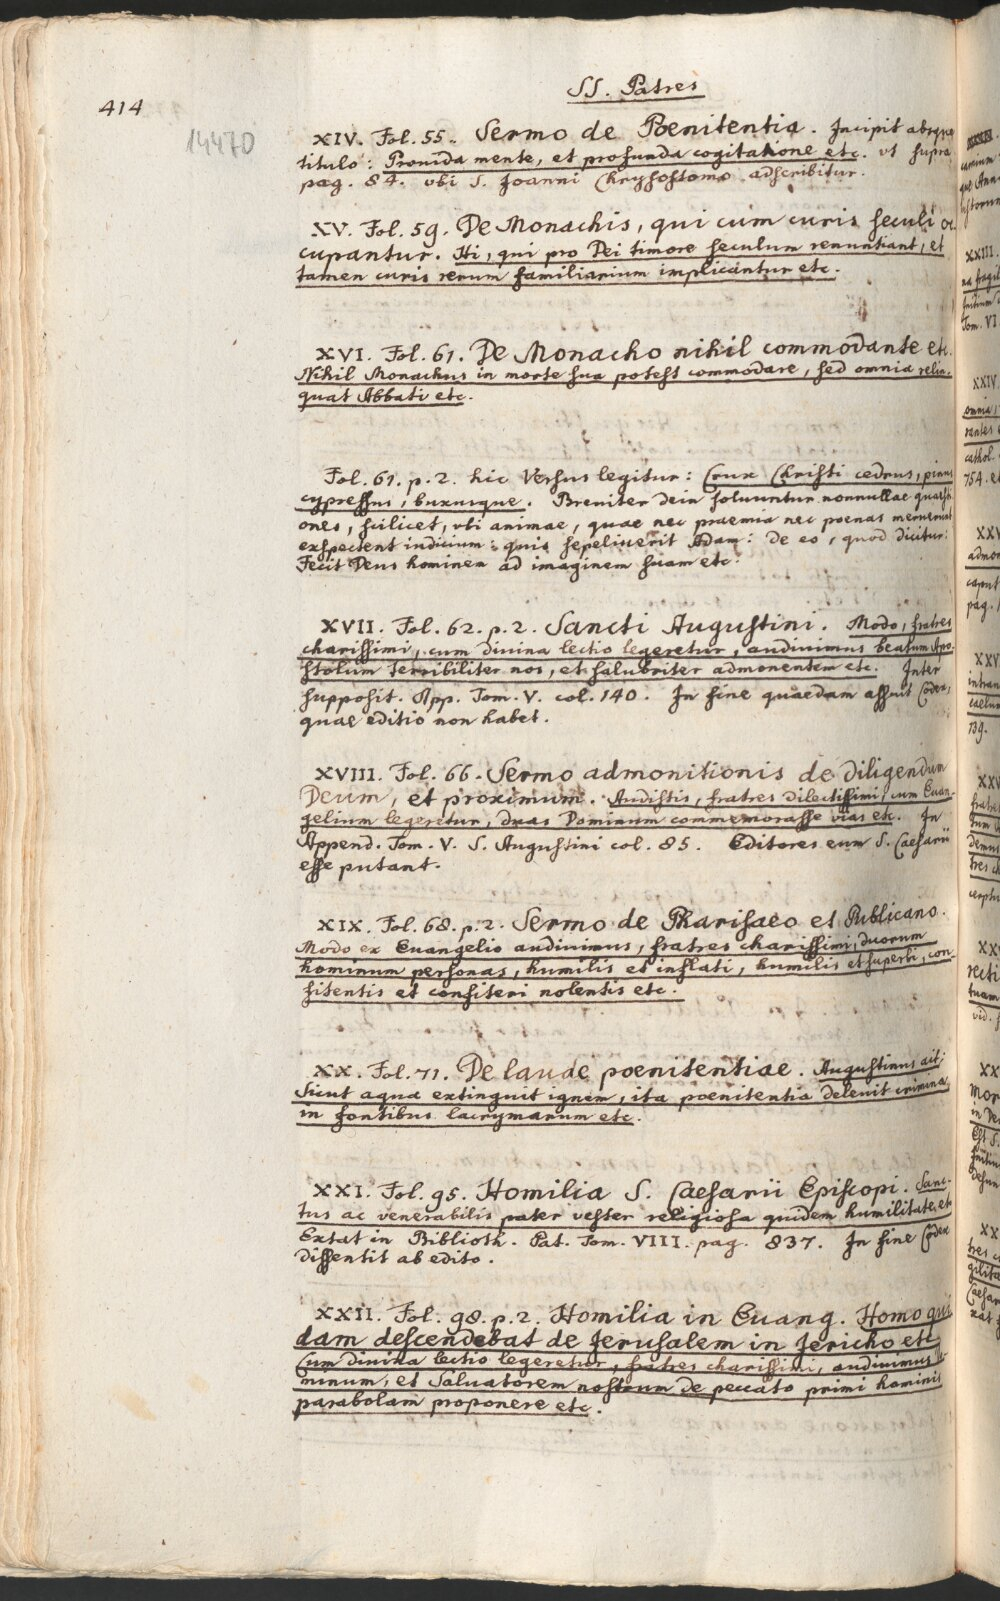 SS. Patres
414
14470
XIV. Fol. 55. Sermo de Poenitentia. Incipit absque
titulo: Prouida mente, et profunda cogitatione etc. vt supra
pag. 84. vbi S. Joanni Chrysostomo adscribitur.
XV. Fol. 59. De Monachis, qui cum curis seculi oc
cupantur. Hi, qui pro Dei timore seculum renuntiant, et
tamen curis rerum familiarium implicantur etc.
XVI. Fol. 61. De Monacho nihil commodante etc.
Nihil Monachus in morte sua potest commodare, sed omnia relin-
quat Abbati etc.
Fol. 61. p. 2. hic Versus legitur: Crux Christi cedrus, pinus
cypressus, buxusque. Breuiter dein soluuntur nonnullae quaesti
ones, scilicet, vbi animae, quae nec praemia nec poenas meruerunt
exspectent iudicium: quis sepeliuerit Adam: De eo, quod dicitur:
Fecit Deus hominem ad imaginem suam etc.
XVII. Fol. 62. p. 2. Sancti Augustini. Modo, fratres
charissimi, cum diuina lectio legeretur, audiuimus beatum Apo-
stolum terribiliter nos, et salubriter admonentem etc. Inter
supposit. App. Tom. V. col. 140. In fine quaedam assuit Codex,
quae editio non habet.
XVIII. Fol. 66. Sermo admonitionis de diligendum
Deum, et proximum. Audistis, fratres dilectissimi, cum Euan-
gelium legeretur, duas Dominum commemorasse vias etc. In
Append. Tom. V. S. Augustini col. 85. Editores eum S. Caesarii
esse putant.
XIX. Fol. 68. p. 2. Sermo de Pharisaeo et Publicano.
Modo ex Euangelio audiuimus, fratres charissimi, duorum
hominum personas, humilis et inflati, humilis et superbi, con-
fitentis et confiteri nolentis etc.
XX. Fol. 71. De laude poenitentiae. Augustinus ait:
Sicut aqua extinguit ignem, ita poenitentia delenit crimina
in fontibus lacrymarum etc.
XXI. Fol. 95. Homilia S. Caesarii Episcopi. Sanc-
tus ac venerabilis pater vester religiosa quidem humilitate, etc
Extat in Biblioth. Pat. Tom. VIII. pag. 837. In fine Codex
dissentit ab edito.
XXII. Fol. 98. p. 2. Homilia in Euang. Homo qui
dam descendebat de Jerusalem in Jericho etc
Cum diuina lectio legeretur, fratres charissimi, audiuimus
minum, et Saluatorem nostrum de peccato primi hominis
parabolam proponere etc.